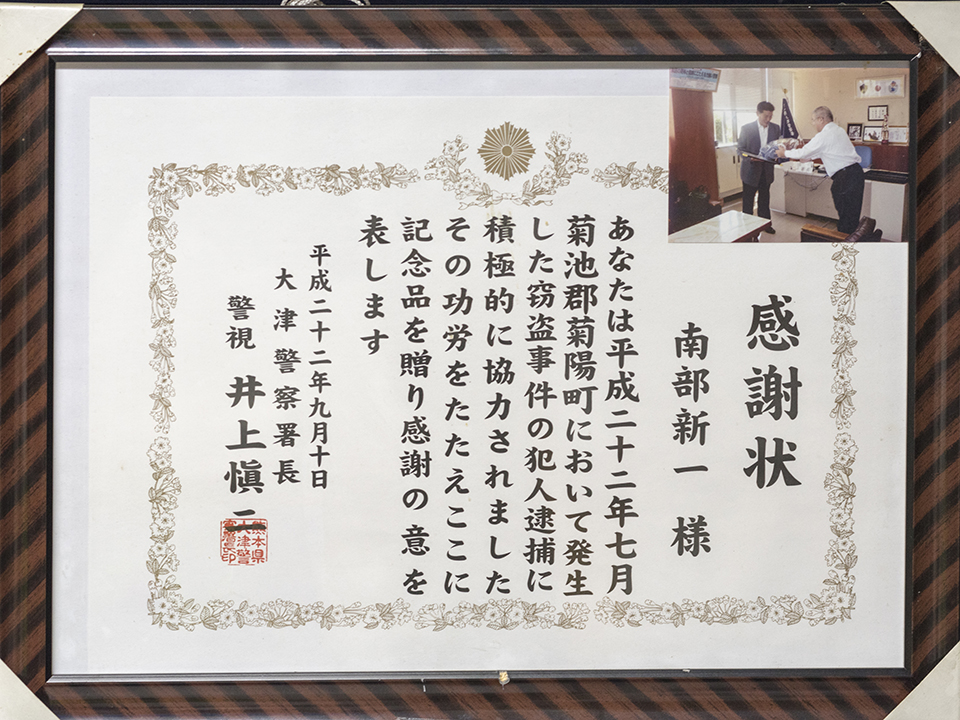 感謝状
南部新一 様
あなたは平成二十二年七月
菊池郡菊陽町において発生
した窃盗事件の犯人逮捕に
積極的に協力されました
その功労をたたえここに
記念品を贈り感謝の意を
表します
平成二十二年九月十日
大津警察署長
警視 井上愼二
熊本県
大津警
察署長印